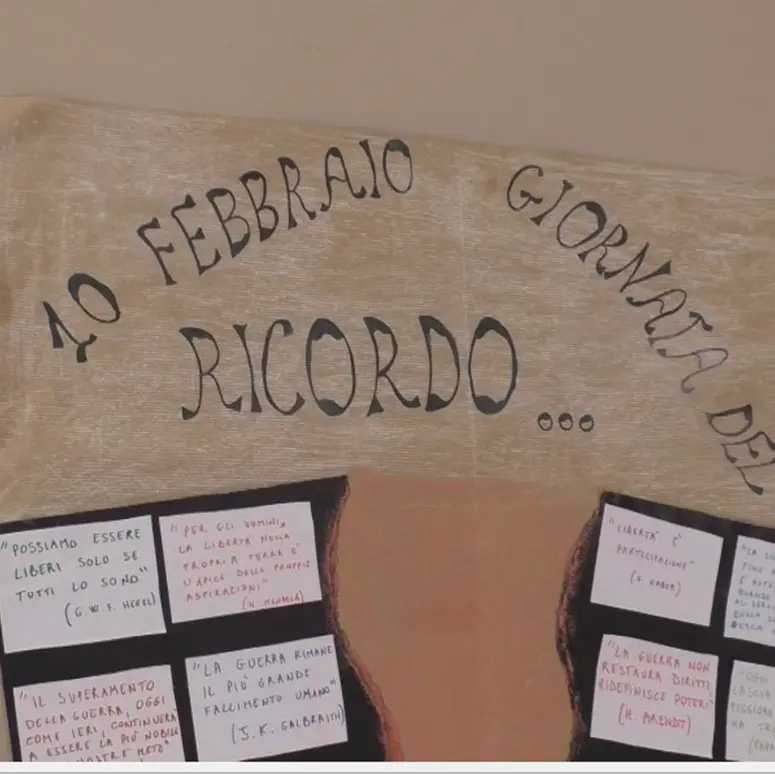 10 FEBBRAIO GIORNATA DEL
RICORDO...
"POSSIAMO ESSERE
LIBERI SOLO SE
TUTTI LO SONO"
(G. W. F. HEGEL)
"PER GLI UOMINI,
LA LIBERTÀ NELLA
PROPRIA TERRA È
L'APICE DELLE PROPRIE
ASPIRAZIONI"
(N. MANDELA)
"IL SUPERAMENTO
DELLA GUERRA, OGGI
COME IERI, CONTINUERÀ
A ESSERE LA PIÙ NOBILE
"LA GUERRA RIMANE
IL PIÙ GRANDE
FALLIMENTO UMANO"
(J. K. GALBRAITH)
"LIBERTÀ È
PARTECIPAZIONE"
(G. GABER)
"LA GUERRA NON
RESTAURA DIRITTI,
RIDEFINISCE POTERI"
(H. ARENDT)